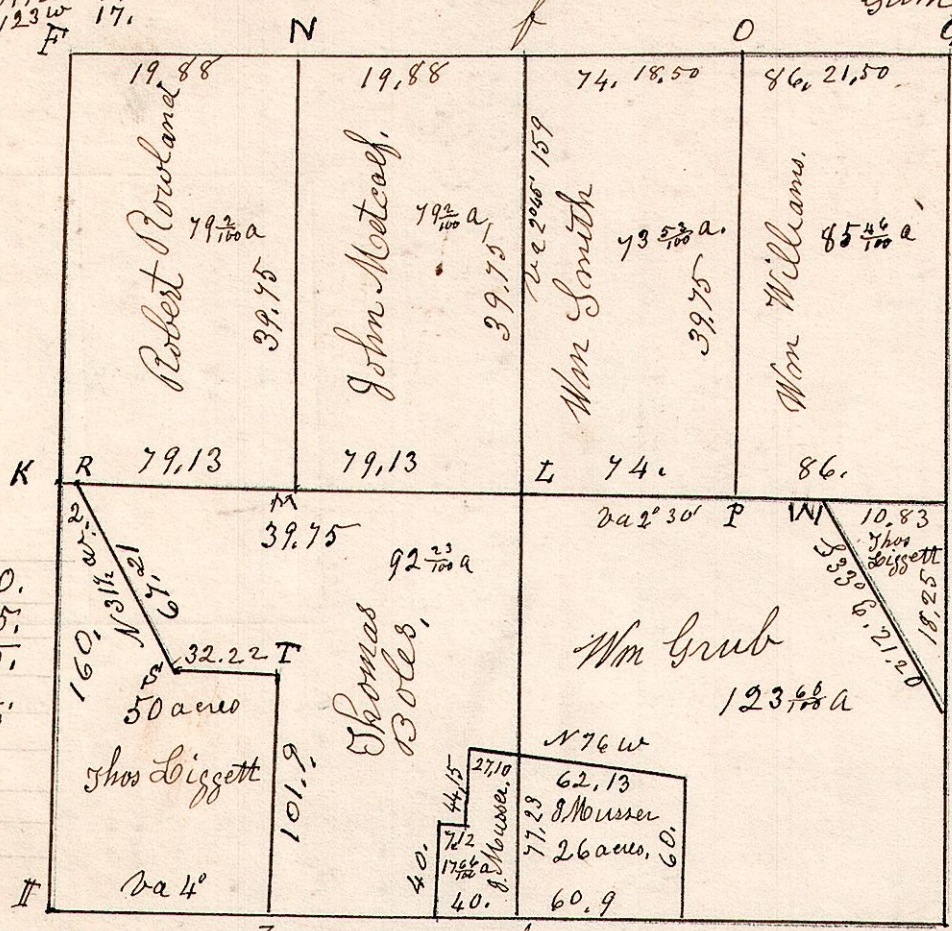 123 W 17.
F N f O
19,88 19,88 74. 18.50 86. 21,50
Robert Rowland
79 2/100 a
39.75
John Metcalf.
79 2/100 a
39.75
va 2°45' 159
Wm Smith
73 52/100 a.
39.75
Wm Williams.
85 46/100 a
79,13 79,13 74. 86.
K R M L P W
39.75
va 2°30'
10.83
Thos
Liggett
18,25
S 33° E. 21,20
160.
N 31½ W. 2
67. 21
32.22 T
50 acres
Thos Liggett
101.9
va 4°
92 23/100 a
Thomas
Boles,
Wm Grub
123 66/100 a
N 76 W
27,10
44,15
62,13
77,23
J Musser
26 acres,
60.
7,12
17 66/100 a
J. Musser,
40.
40.
60.9